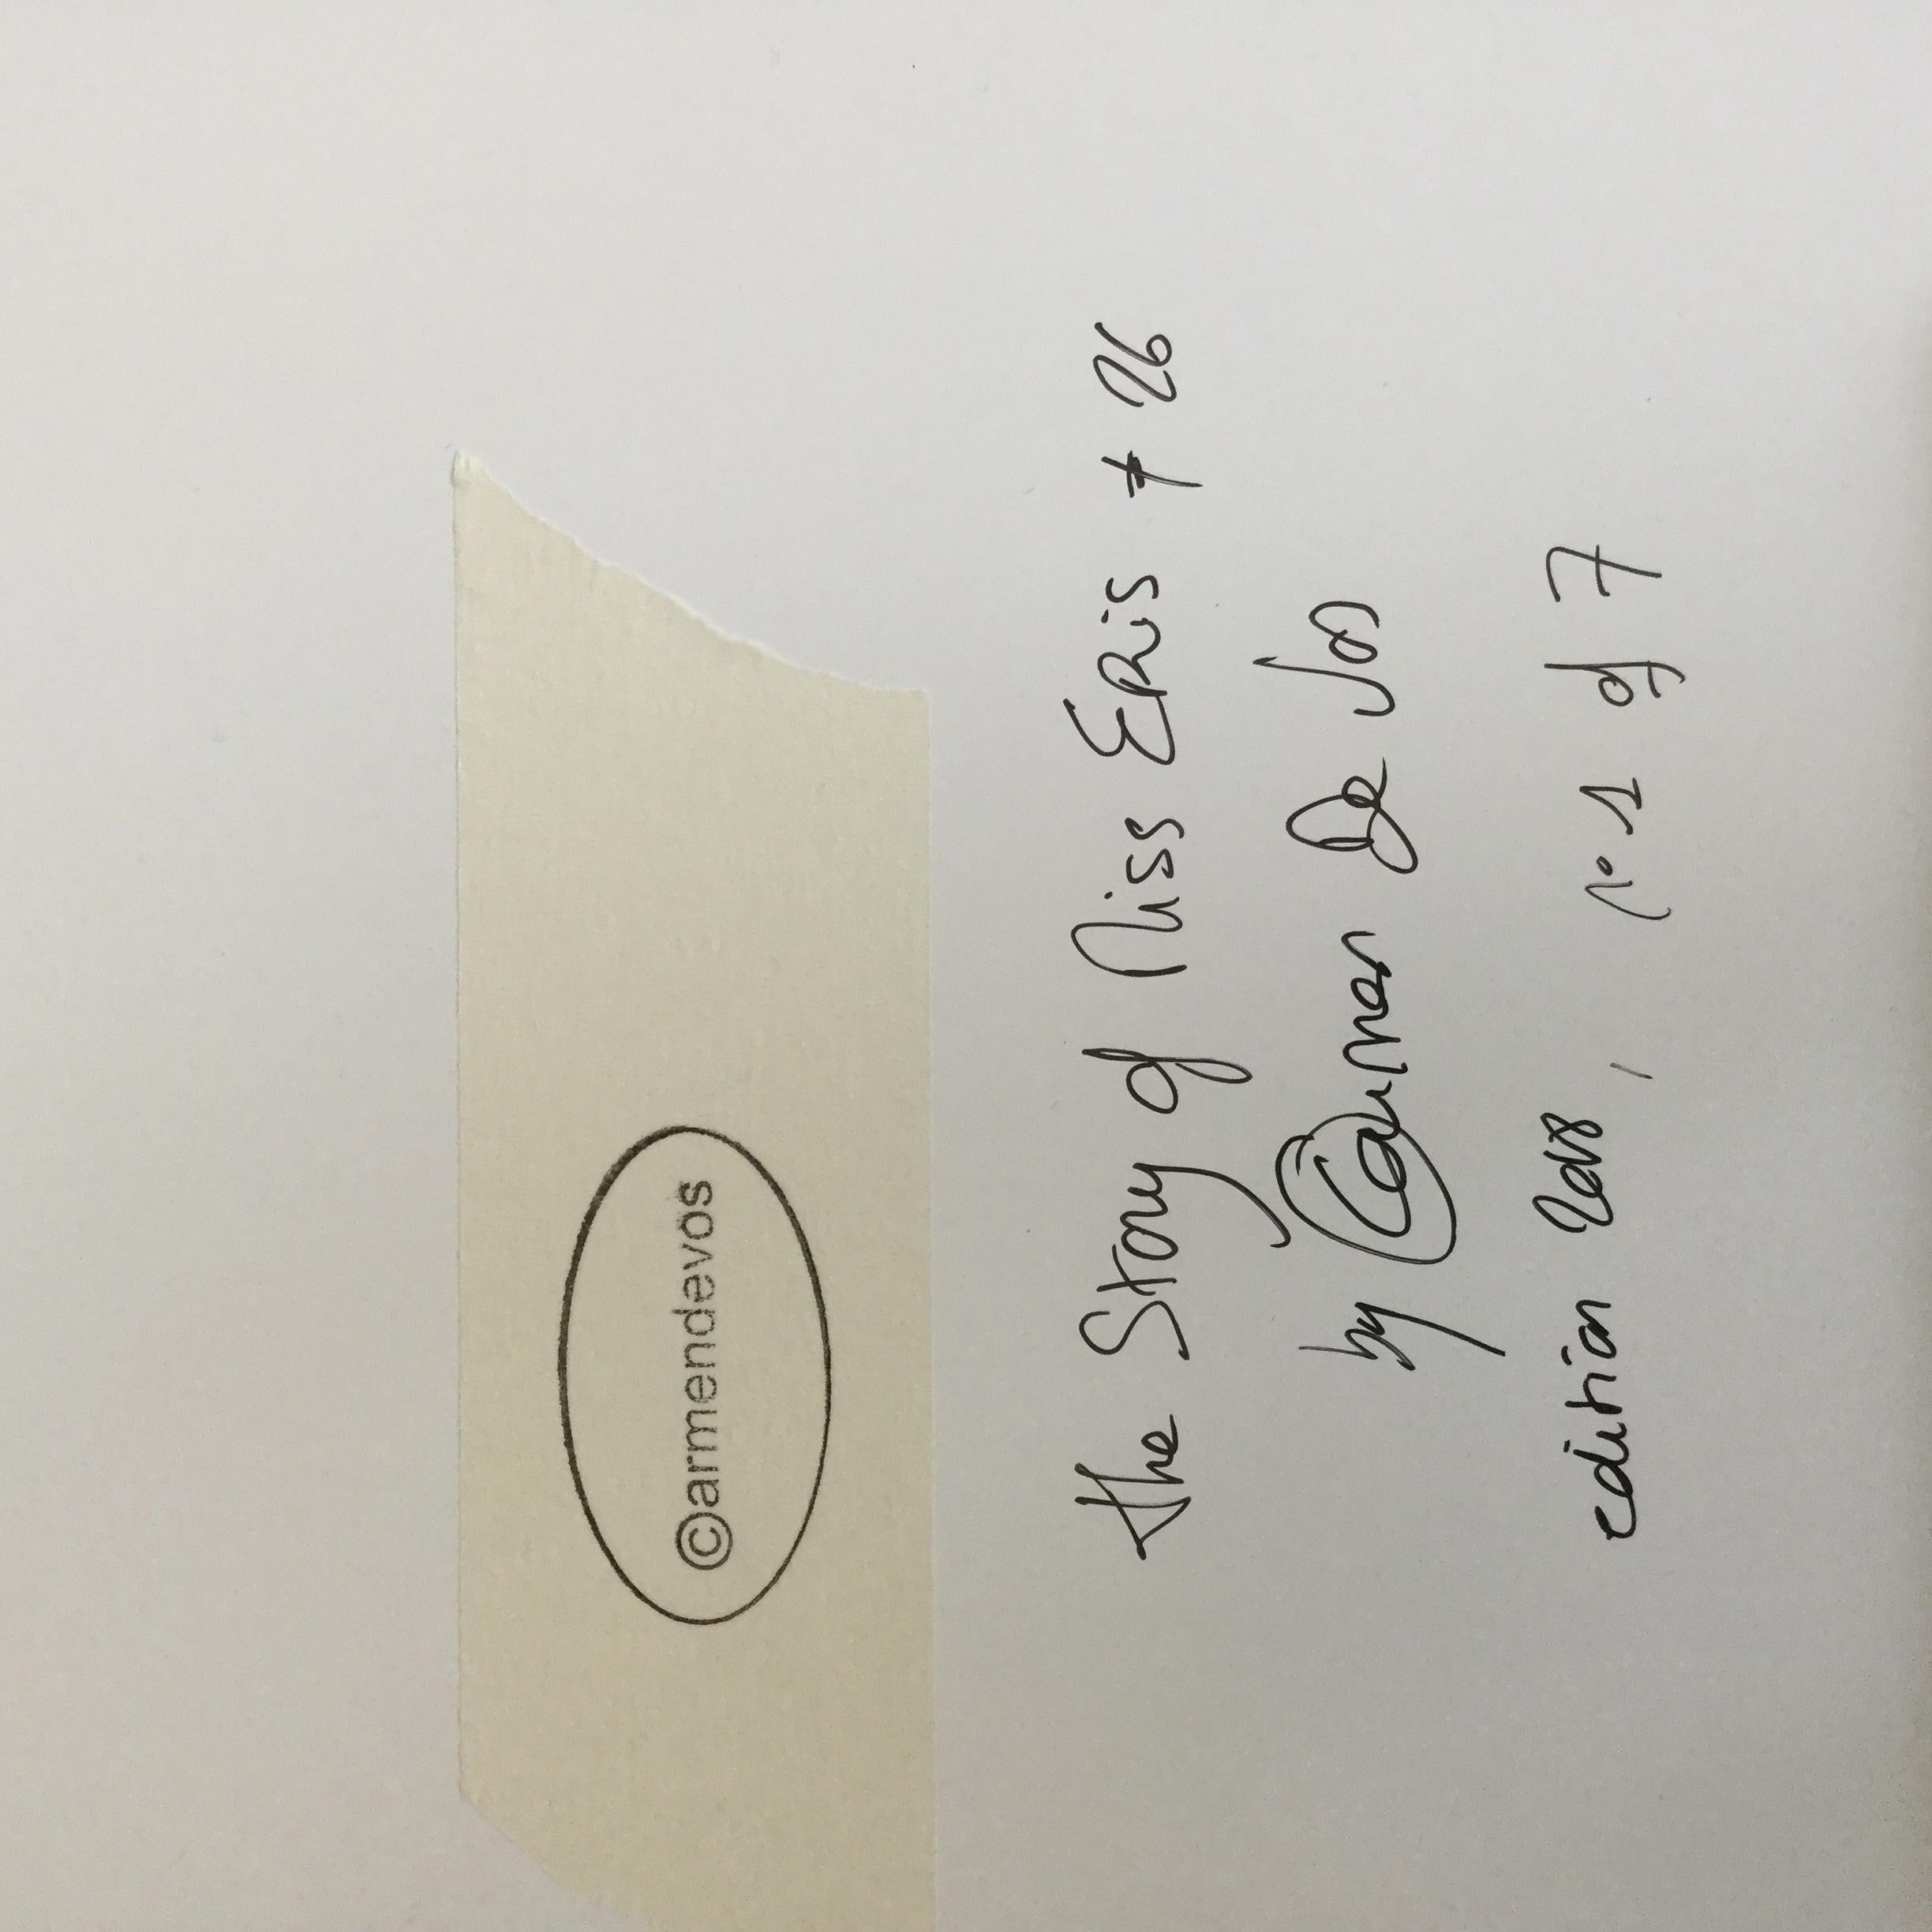 ©armendevos
the Story of Miss Eris # 26
by ©armen De Vos
edition 2018, n° 1 of 7